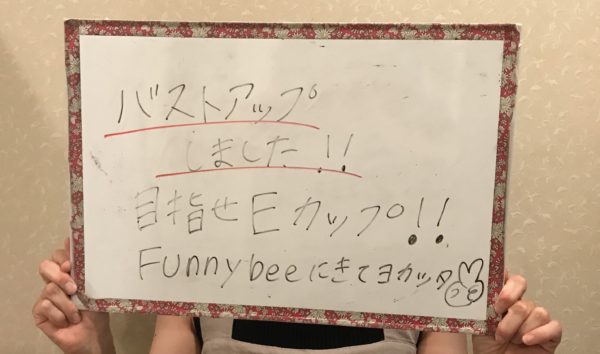 バストアップ
しました!!
目指せEカップ!!
Funnybeeにきてヨカッタ